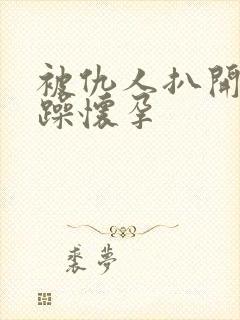 被仇人扒開
躁懷孕
裘夢